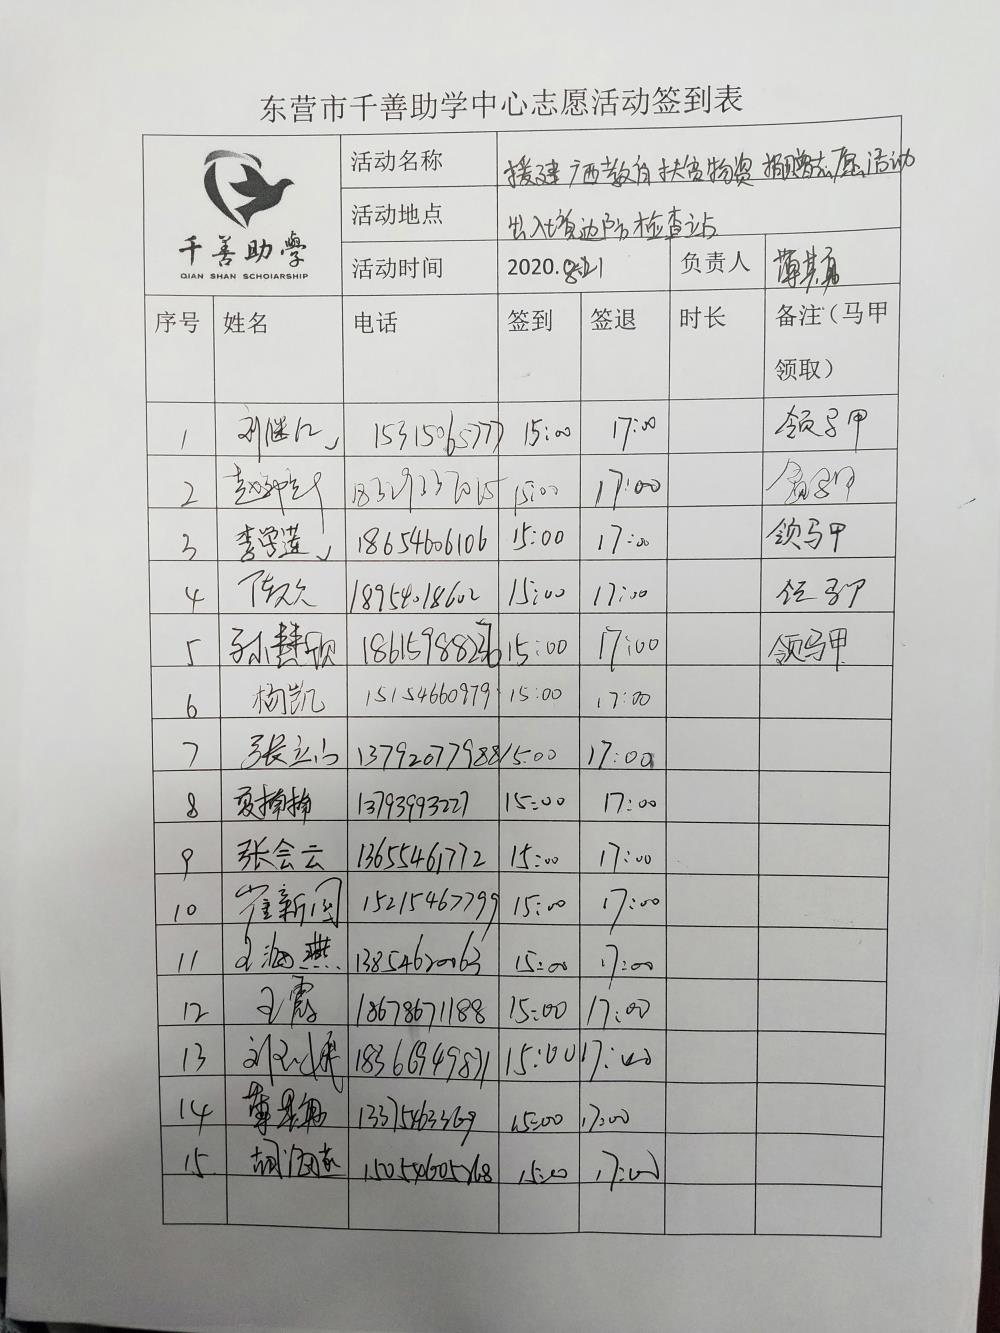 东营市千善助学中心志愿活动签到表
千善助學
QIAN SHAN SCHOIARSHIP
活动名称 援建广西教育扶贫物资捐赠志愿活动
活动地点 出入境边防检查站
活动时间 2020.8.21 负责人 薄其勇
序号 姓名 电话 签到 签退 时长 备注（马甲
领取）
1 刘继仁 15315065777 15:00 17:00 领马甲
2 15:00 17:00 领马甲
3 李学莲 18654606106 15:00 17:00 领马甲
4 陈久久 18954018602 15:00 17:00 领马甲
5 孙慧颀 15:00 17:00 领马甲
6 杨凯 15154660979 15:00 17:00
7 张立山 13792077988 15:00 17:00
8 夏楠楠 13793993227 15:00 17:00
9 张会云 13655461772 15:00 17:00
10 崔新国 15215467799 15:00 17:00
11 王海燕 13854620063 15:00 17:00
12 王霞 18678671188 15:00 17:00
13 18366949871 15:00 17:00
14 薄其勇 13375463369 15:00 17:00
15 15:00 17:00